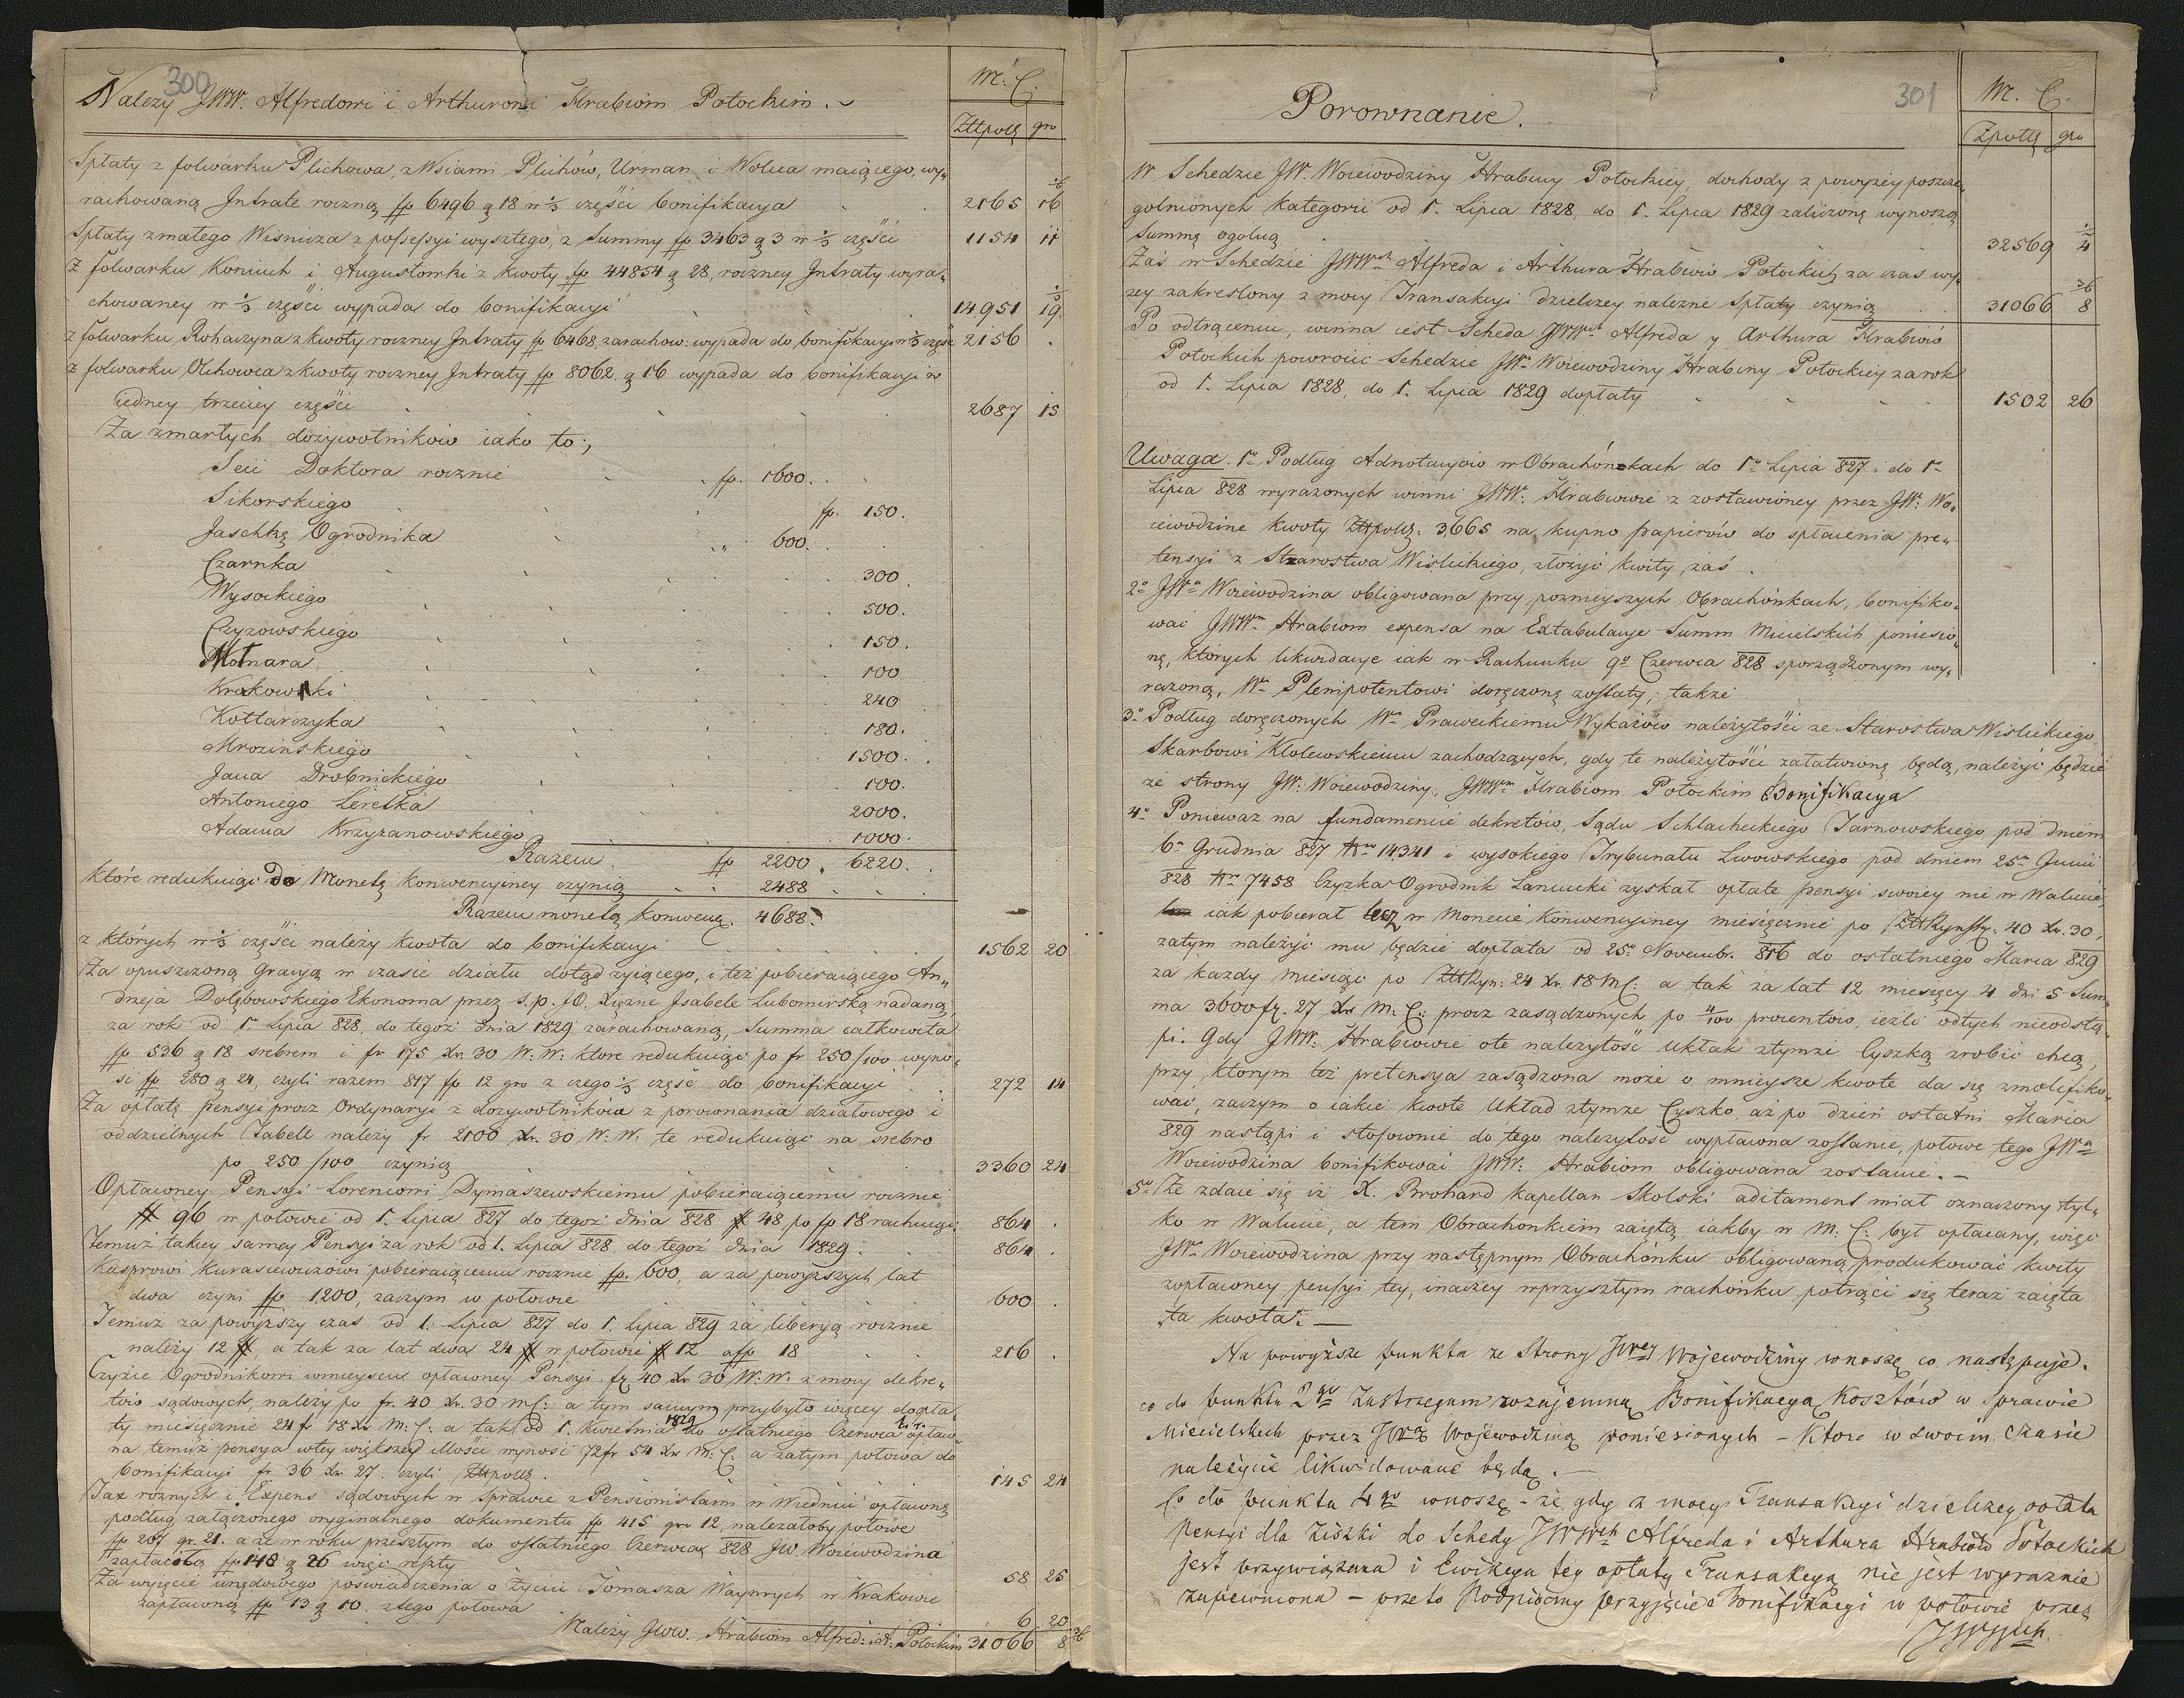 300
Należy JWW. Alfredowi i Arthurowi Hrabiom Potockim.
M. C.
Złłpolś gro
Spłaty z folwarku Plichowa, z Wsiami Plichów, Urman i Wolica maiącego, wy„
rachowaną Intratę roczną fp 6496 g 18 w ⅓ części bonifikacya 2165 16
Spłaty z małego Wisnicza z possessyi wyszłego, z Summy fp 3463 g 3 w ⅓ części 1154 11
Z folwarku Koniuch i Augustowki z kwoty fp 44854 g 28, roczney Intraty wyra„
chowaney w ⅓ części wypada do bonifikacyi 14951 19
z folwarku Rohaczyna z kwoty roczney Intraty fp 6468, zarachow: wypada do bonifikacyi w ⅓ części 2156 .
z folwarku Olchowca z kwoty roczney Intraty fp 8062 g 16 wypada do bonifikacyi w
iedney trzeciey części 2687 15
Za zmarłych dożywotników iako to;
Seii Doktora rocznie fp. 1600.
Sikorskiego fp. 150.
Jaschkę Ogrodnika „ 600.
Czarnka 300.
Wysockiego 500.
Czyzowskiego 150.
Młotnara 100
Krakowski 240
Kotlarczyka 180.
Mrozinskiego 1500.
Jana Drobnickiego 100.
Antoniego Leretka 2000.
Adama Krzyzanowskiego 1000.
Razem fp 2200 . 6220.
które redukuiąc Do Monetę konwencyiney czynią 2488
Razem monetą konwenc. 4688.
z których w ⅓ części należy kwota do bonifikacyi 1562 20
Za opuszczoną gracyą w czasie działu dotąd zyiącego, i też pobieraiącego An„
drzeja Dołębowskiego Ekonoma przez s.p. JO. Xiężne Isabele Lubomirską nadaną,
za rok od 1º Lipca 828, do tegoż dnia 1829 zarachowaną, Summa całkowita
fp 536 g 18 srebrem i fr 175 Xr 30 W.W. ktore redukuiąc po fr 250/100 wyno„
si fp 280 g 24, czyli razem 817 fp 12 gro z czego ⅓ część do bonifikacyi 272 14
Za opłatę pensyi procz Ordynaryi z dozywotników z porownania działowego i
oddzielnych Tabell należy fr 2100 Xr. 30 W. W. te redukuiąc na srebro
po 250/100 czynią 3360 24
Opłaconey Pensyi Lorencowi Dymaszewskiemu pobieraiącemu rocznie
# 96 w połowie od 1. Lipca 827 do tegoż dnia 828 # 48 po fp 18 rachuiąc 864 .
Temuż takiey samey Pensyi za rok od 1. Lipca 828 do tegoż dnia 1829. 864 .
Kasprowi Kurasiewiczowi pobieraiącemu rocznie fp. 600, a za powyższych lat
dwa czyni fp 1,200, zaczym w połowie 600 .
Temuz za powyższy czas od 1. Lipca 827 do 1. Lipca 829 za liberyą rocznie
należy 12 #, a tak za lat dwa 24 # w połowie # 12 a fp 18 216 .
Czyżce Ogrodnikowi wmieyscu opłaconey Pensyi fr 40 Xr 30 W. W. z mocy dekre„
tów sądowych, należy po fr. 40 Xr. 30 mC: a tym samym przybyło więcey dopła„
ty miesięcznie 24 fr 18 Xr M. C: a tak od 1. Kwietnia 1829 do ostatniego Czerwca b.r. opłaco„
na temuż pensya wtey większey illości wynosi 72 fr 54 Xr M. C. a zatym połowa do
bonifikacyi fr 36 Xr 27. czyli Złłpolś. 145 24
Tax roznych i Expens sądowych w sprawie z Pensionistami w Wiedniu opłaconą
podług załączonego oryginalnego dokumentu fp 415 gro 12, nalezałoby połowe
fp 207 gr. 21. a że w roku przeszłym do ostatniego Czerwca 828 JW. Woiewodzina
zapłaciła fp 148 g 26 więc reszty 58 25
Za wyięcie urzędowego poświadczenia o życiu Tomasza Waynrych w Krakowie
zapłaconą fp 13 g 10. z tego połowa 6 20
Należy JWW. Hrabiom Alfred: i A: Potockim 31066 8
301
Porownanie.
M. C.
Złpolś gro
W Schedzie JW. Woiewodziny Hrabiny Potockiey, dochody z powyżey poszcze„
golnionych kategorii od 1. Lipca 1828, do 1. Lipca 1829 zaliczoną wynoszą
Summę ogolną 32569 4
Zaś w Schedzie JWWch Alfreda i Arthura Hrabiów Potockich, za czas wy„
zey zakreslony z mocy Transakcyi dzielczey należne spłaty czynią 31066 8
Po odtrąceniu, winna iest Scheda JWWch Alfreda y Arthura Hrabiów
Potockich powrocic Schedzie JWº Woiewodziny Hrabiny Potockiey za rok
od 1. Lipca 1828, do 1. Lipca 1829 dopłaty 1502 26
Uwaga. 1º Podług Adnotacyiów w Obrachónkach do 1º Lipca 827. do 1º
Lipca 828 wyrazonych winni JWW. Hrabiowie z zostawioney przez JW. Wo„
iewodzine kwoty Złłpolś. 3,665 na kupno papierów do spłacenia pre„
tensyi z Starostwa Wislickiego, złożyć kwity, zaś
2º JWª Woiewodzina obligowana przy pozmieyszych Obrachónkach, bonifiko„
wać JWWm Hrabiom expensa na Extabulacye Summ Micielskich poniesio„
ne, których likwidacye iak w Rachunku 9º Czerwca 828 sporządzonym wy„
razoną, Wº Plenipotentowi doręczoną zostały; także
3º Podług doręczonych Wº Praweckiemu Wykazów należytości ze Starostwa Wislickiego
Skarbowi Klolewskiemu zachodzących, gdy te należytości załatwioną będą, należyć będzie
ze strony JW: Woiewodziny, JWWm Hrabiom Potockim Bonifikacya
4º Ponieważ na fundamencie dekretów, Sądu Schlacheckiego Tarnowskiego pod dniem
6º Grudnia 827 Nro 14341 i wysokiego Trybunału Lwowskiego pod dniem 25º Junii
828 Nro 7458 Czyzka Ogrodnik Łancucki zyskał opłatę pensyi swoiey nie w Walucie,
iak pobierał lecz w Monecie Konwencyiney miesięcznie po Ryńsky. 40 Xr. 30,
zatym należyć mu będzie dopłata od 25º Novembr. 816 do ostatniego Marca 829
za kazdy miesiąc po Ryn: 24 Xr. 18 mC: a tak za lat 12 miesięcy 4 dni 5 Sum„
ma 3600 fr. 27 Xr M. C: procz zasądzonych po 4/100 procentow, ieżli odtych nieodstą„
pi. Gdy JWW. Hrabiowie ote należytość Układ ztymże Cyszką zrobić chcą,
przy którym też pretensya zasądzona może o mnieysze kwote da się zmolifiko„
wać, zaczym o iakie kwote Układ ztymze Cyszko, aż po dzień ostatni Marca
829 nastąpi i stosownie do tego należytość wypłacona zostanie, połowe tego JWª
Woiewodzina bonifikować JWW: Hrabiom obligowana zostanie. –
5º Że zdaie się iż X. Brohard Kapellan Skolski aditament miał oznaczony tyl„
ko w Walucie, a tem Obrachonkiem zaiętą, iakby w M. C: był opłacany, więc
JWª Woiewodzina przy następnym Obrachónku obligowaną produkować kwity
zopłaconey pensyi tey, inaczey wprzyszłym rachónku potrąci się teraz zaięta
ta kwota. —
Na powyższe punkta ze Strony JWey Wojewodziny wnoszę co następuje.
co do punktu 2go Zastrzegam wzajemną Bonifikacya Kosztów w Sprawie
Micielskich przez JWą Wojewodzinę poniesionych – Ktore w swoim Czasie
należycie likwidowane będą. —
Co do punktu 4go wnoszę – że gdy z mocy Transakcyi dzielczey opłata
Pensyi dla Ziszki do Schedy JWWch Alfreda i Arthura Hrabiów Potockich
jest przywiązana i Ewikcya tey opłaty Transakcyą nie jest wyraznie
zapewniona – przeto Podpisany przyjęcie Bonifikacyi w połowie przez
JWWch